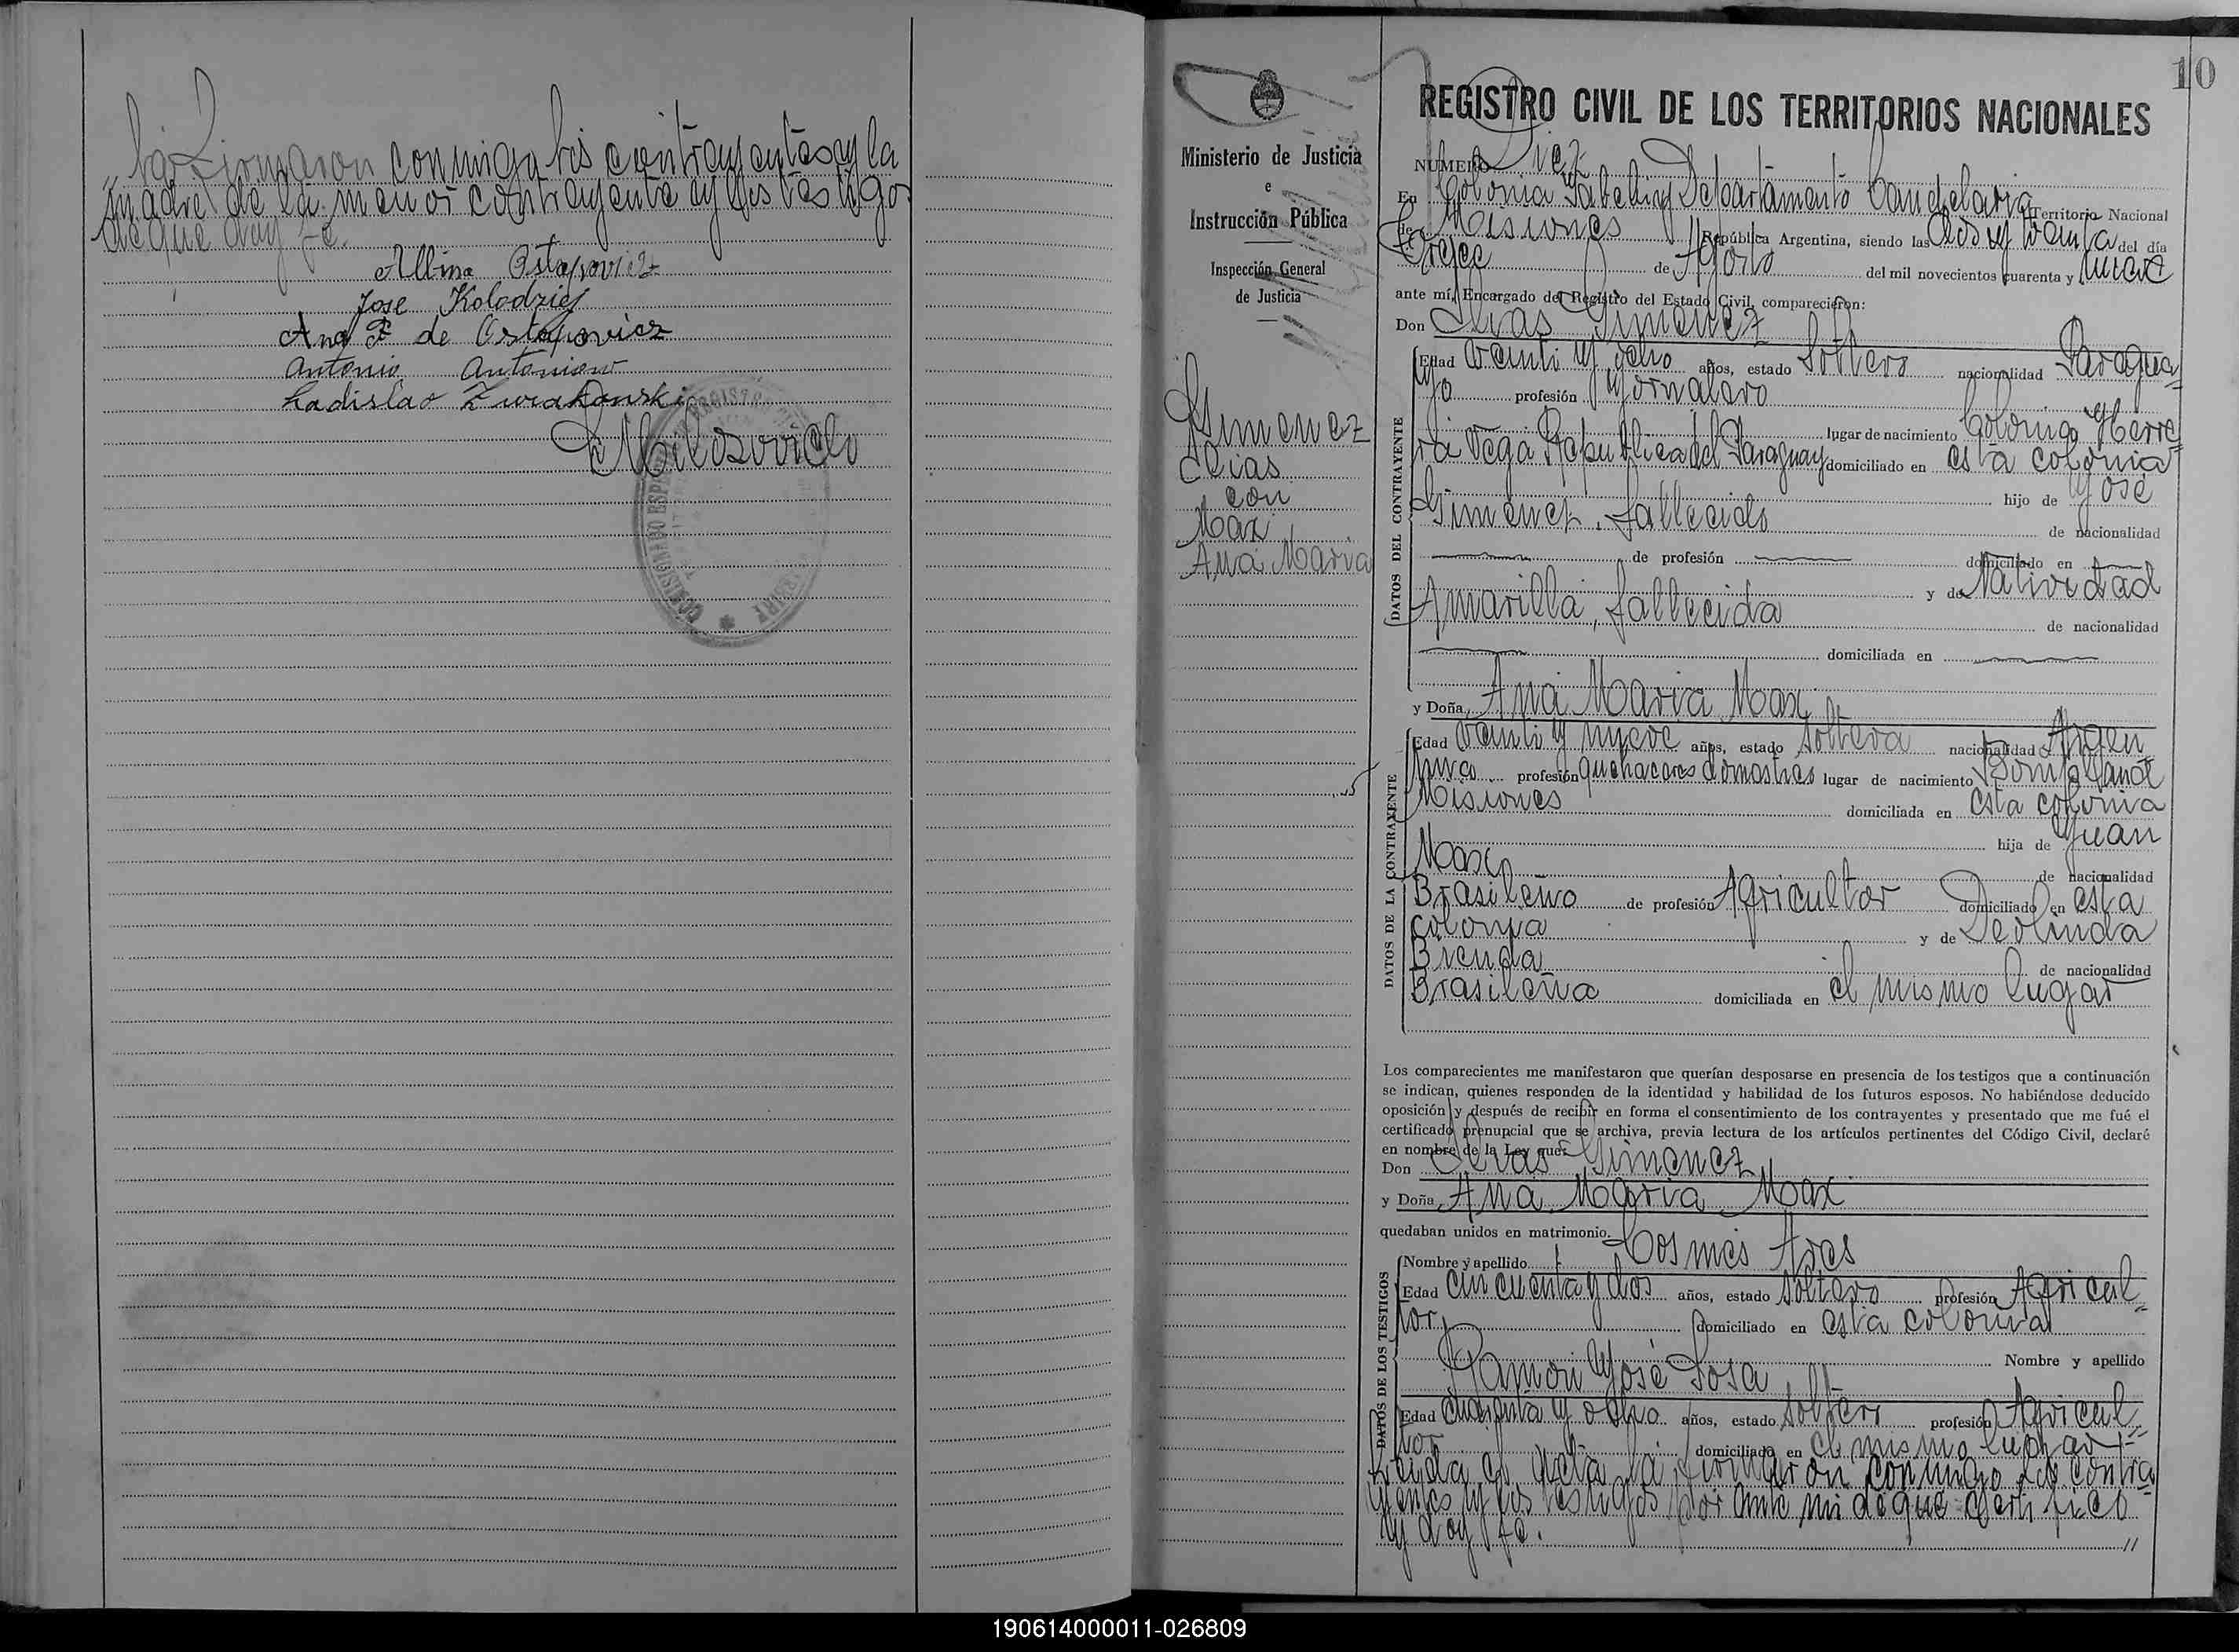 la firmaron conmigo los contrayentes y la
madre de la menor contrayente y los testigos
de que doy fe.
Albina Ostapovicz
Jose Kolodziej
Ana F. de Ostapovicz
Antonio Antoniow
Ladislao Zurakowski
Milosovich
10
Ministerio de Justicia
e
Instrucción Pública
Inspección General
de Justicia
Gimenez
Elias
con
Max
Ana Maria
REGISTRO CIVIL DE LOS TERRITORIOS NACIONALES
NUMERO Diez
En Colonia Departamento Candelaria Territorio Nacional
de Misiones República Argentina, siendo las dos y treinta del día
trece de Agosto del mil novecientos cuarenta y nueve
ante mí, Encargado del Registro del Estado Civil, comparecieron:
Don Elias Gimenez
Edad veinti y ocho años, estado Soltero nacionalidad Paragua-
yo profesión Jornalero
lugar de nacimiento Colonia Yerre
ra Vega Republica del Paraguay domiciliado en esta colonia
hijo de José
Gimenez, fallecido
de nacionalidad
de profesión domiciliado en
y de Natividad
Amarilla, fallecida
de nacionalidad
domiciliada en
DATOS DEL CONTRAYENTE
y Doña Ana Maria Max
Edad veinti y nueve años, estado soltera nacionalidad Argen
tina profesión quehaceres domesticos lugar de nacimiento Bompland
Misiones domiciliada en esta colonia
hija de Juan
Max
de nacionalidad
Brasileño de profesión Agricultor domiciliado en esta
colonia y de Deolinda
Brenda
de nacionalidad
Brasileña domiciliada en el mismo lugar
DATOS DE LA CONTRAYENTE
Los comparecientes me manifestaron que querían desposarse en presencia de los testigos que a continuación
se indican, quienes responden de la identidad y habilidad de los futuros esposos. No habiéndose deducido
oposición y después de recibir en forma el consentimiento de los contrayentes y presentado que me fué el
certificado prenupcial que se archiva, previa lectura de los artículos pertinentes del Código Civil, declaré
en nombre de la Ley que:
Don Elias Gimenez
y Doña Ana Maria Max
quedaban unidos en matrimonio.
Nombre y apellido Cosmes Ares
Edad cincuenta y dos años, estado soltero profesión Agricul-
tor domiciliado en esta colonia
Nombre y apellido
Ramon José Sosa
Edad cuarenta y ocho años, estado soltero profesión Agricul-
tor domiciliado en el mismo lugar
DATOS DE LOS TESTIGOS
Leida el acta la firmaron conmigo los contra
yentes y los testigos por ante mi de que certifico
y doy fe.
190614000011-026809